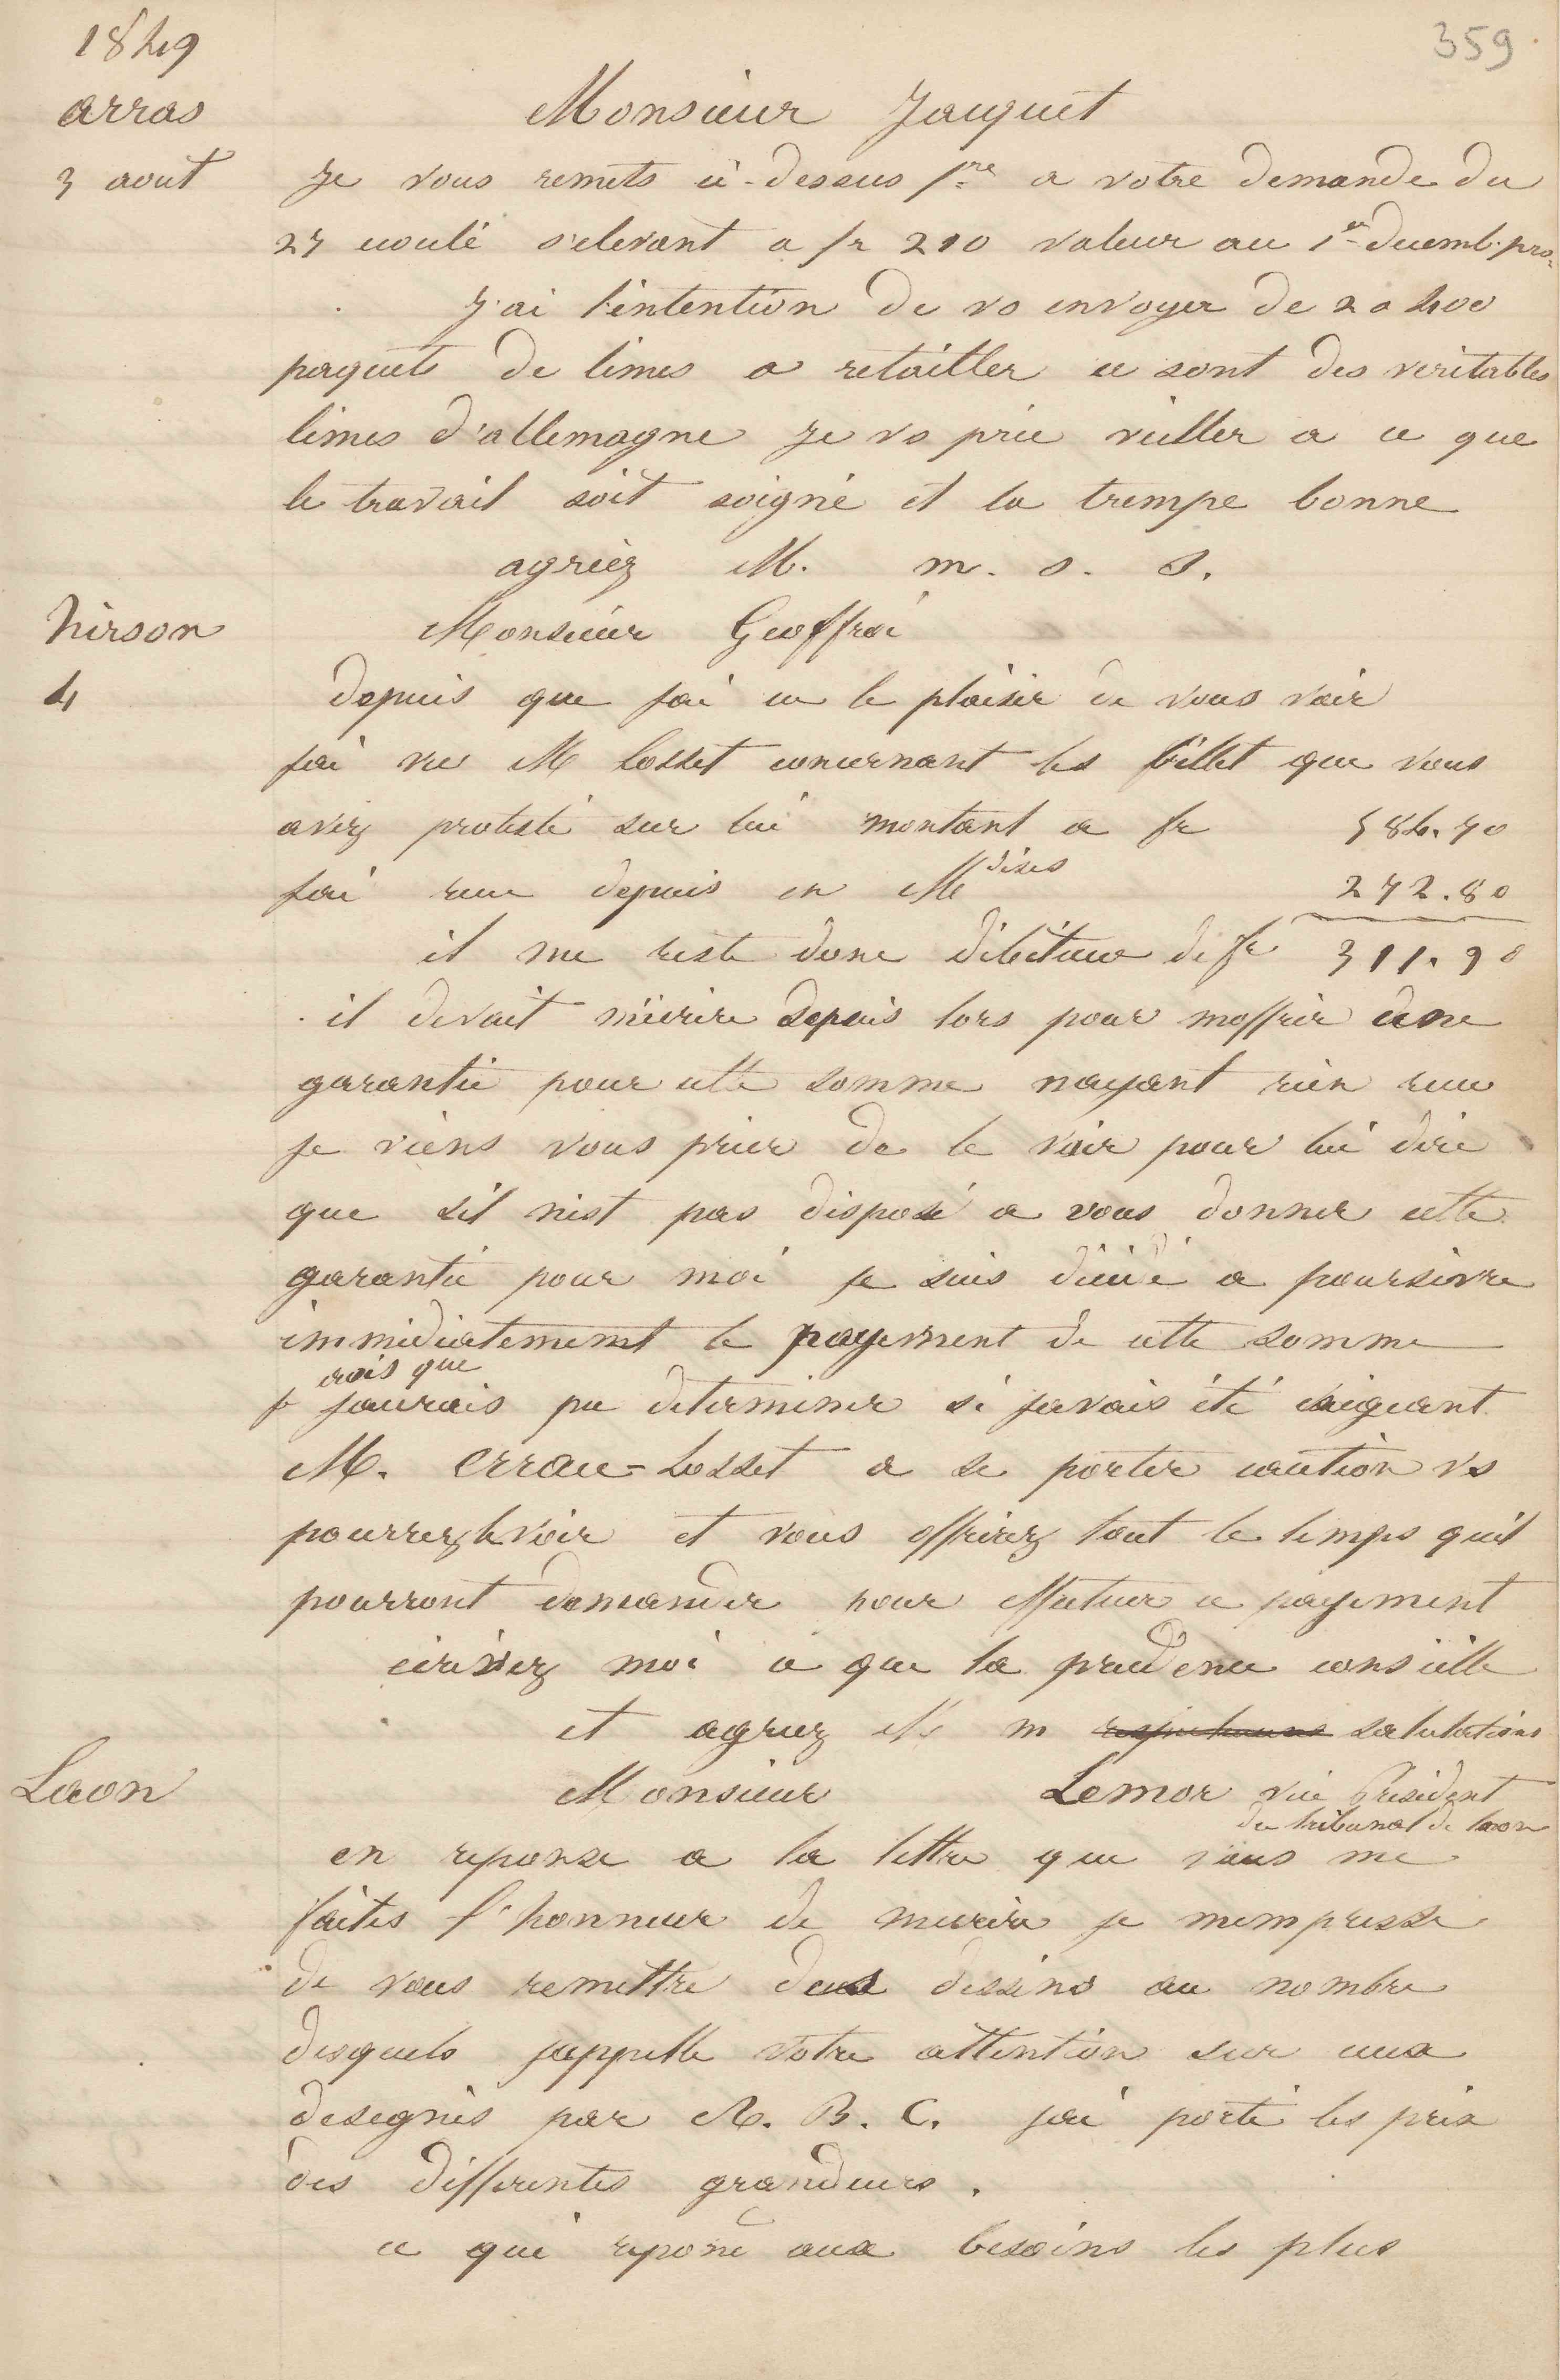 1849
359
arras
Monsieur Jacquet
3 aout
Je vous remets ci-dessus fre a votre demande du
27 coulé s'elevant a fr 210 valeur au 1er decemb. pro.
J'ai l'intention de vs envoyer de 2 a 400
paquets de limes a retailler ce sont des veritables
limes d'allemagne Je vs prie veiller a ce que
le travail soit soigné et la trempe bonne
agréez M. m. s. s.
hirson
Monsieur Geoffroi
4
depuis que jai eu le plaisir de vous voir
jai vu M Cosset concernant les billet que vous
avez protesté sur lui montant a fr 584.70
jai recu depuis en Mdises 272.80
il me reste donc débiteur de fr 311.90
il devait m'écrire depuis lors pour moffrir une
garantie pour cette somme nayant rien recu
je viens vous prier de le voir pour lui dire
que sil nest pas disposé a vous donner cette
garantie pour moi je suis décidé a poursivre
immédiatement le payement de cette somme
crois que
je jaurais pu déterminer si javais été exigeant
M. errau-Cosset a se porter caution vs
pourrez le voir et vous offrirez tout le temps quil
pourront demander pour effectuer ce payement
écrivez moi ce que la prudence conseille
et agreez M m salutations
Laon
Monsieur Lemor vice Président
du tribunal de laon
en reponse a la lettre que vous me
faites l'honneur de mecrire je mempresse
de vous remettre deux dessins au nombre
desquels jappelle votre attention sur ceux
desegnés par A. B. C. jai porté les prix
des differentes grandeurs.
ce qui repond aux besoins les plus